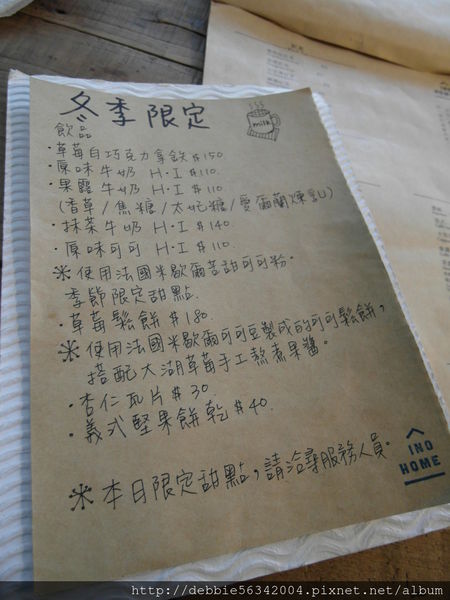 冬季限定
milk
飲品
・草莓白巧克力拿鐵 $150
・原味牛奶 H・I $110.
・果露牛奶 H・I $110
(香草/焦糖/太妃糖/愛爾蘭煉乳)
・抹茶牛奶 H・I $140.
・原味可可 H・I $110.
※使用法國米歇爾苦甜可可粉。
季節限定甜點.
・草莓鬆餅 $180.
※使用法國米歇爾可可豆製成的可可鬆餅，
搭配大湖草莓手工熬煮果醬。
・杏仁瓦片 $30
・義式堅果餅乾 $40.
※本日限定甜點，請洽尋服務人員。
INO
HOME
http://debbie56342004.pixnet.net/album